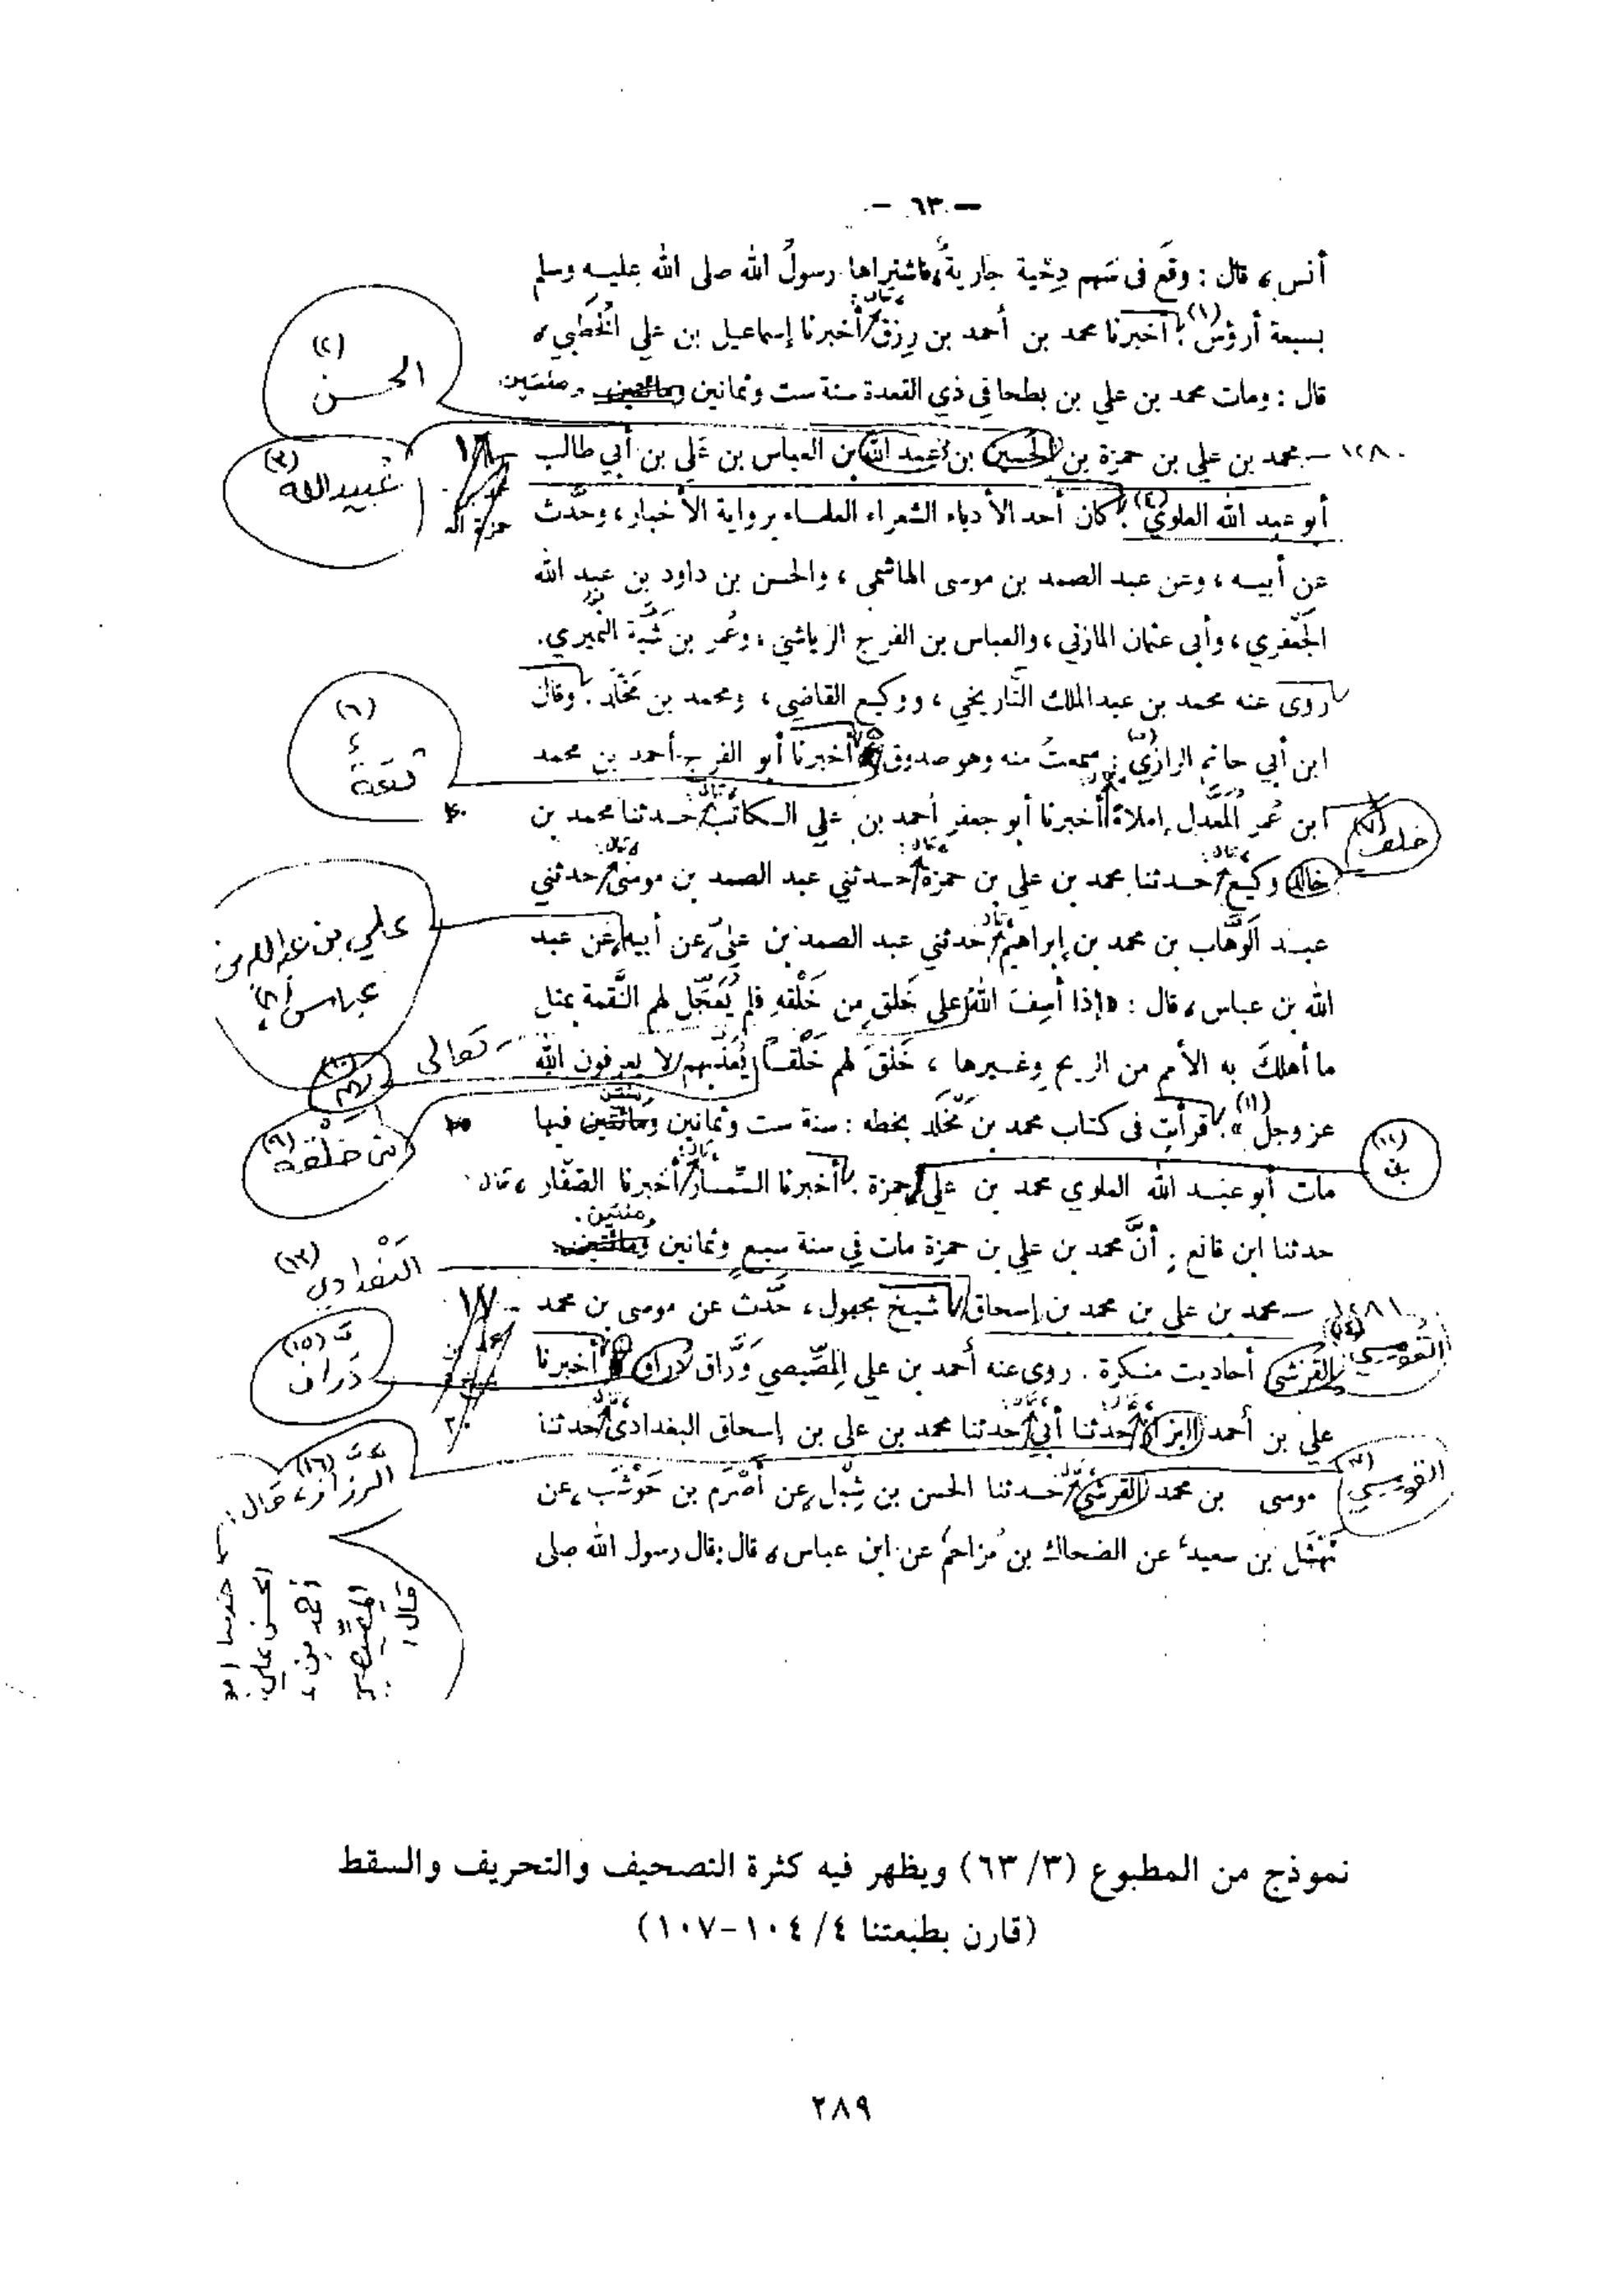 — ٦٣ —
أنس، قال: وقَع فى سَهم دِحْية جاريةٌ، فاشتراها رسولُ الله صلى الله عليه وسلم
بسبعة أرؤس (١). أخبرنا محمد بن أحمد بن رزق، قال: أخبرنا إسماعيل بن علي الخُطَبي،
قال: ومات محمد بن علي بن بطحا في ذي القعدة سنة ست وثمانين ومائتين ومئتين.
(٢) الحسن
١٢٨٠ — محمد بن علي بن حمزة بن الحسين بن عبد الله بن العباس بن علي بن أبي طالب
(٣) عُبيدالله
أبو عبد الله العلوي (٤). كان أحد الأدباء الشعراء العلماء برواية الأخبار، وحدَّث
عن أبيه، وعن عبد الصمد بن موسى الهاشمى، والحسن بن داود بن عبد الله
الجَعْفري، وأبى عثمان المازني، والعباس بن الفرج الرياشي، وعُمر بن شَبَّة النُّميري.
روى عنه محمد بن عبدالملك التَّاريخي، ووكيع القاضي، ومحمد بن مَخْلَد. وقال
ابن أبي حاتم الرازي (٥): سمعتُ منه وهو صدوق أخبرنا أبو الفرج أحمد بن محمد
(٦) ثقةٌ
ابن عُمر المُعَدَّل إملاءً أخبرنا أبو جعفر أحمد بن علي الكاتب، قال: حدثنا محمد بن
(٧) خلف
خالد وكيع، قال: حدثنا محمد بن علي بن حمزة، قال: حدثني عبد الصمد بن موسى، قال: حدثني
عبد الوَهَّاب بن محمد بن إبراهيم، قال: حدثني عبد الصمد بن عليّ، عن أبيه، عن عبد
علي بن عبدالله بن عباس
الله بن عباس، قال: «إذا أسِفَ اللهُ على خَلقٍ من خَلْقهِ فلم يُعَجِّل لهم النَّقمة بمثل
ما أهلكَ به الأمم من الريح وغيرها، خَلَقَ لهم خَلْقاً يُعَذِّبهم لا يعرفون الله
تعالى
(٩) من خَلْقه
عز وجل» (١١). قرأت فى كتاب محمد بن مَخْلَد بخطه: سنة ست وثمانين ومائتين ومئتين فيها
مات أبو عبد الله العلوي محمد بن علي حمزة. أخبرنا السِّمسار، قال: أخبرنا الصَّفّار، قال:
بن
حدثنا ابن قانع: أنَّ محمد بن علي بن حمزة مات في سنة سبعٍ وثمانين ومائتين ومئتين.
(١٣) البَغْدادي
١٢٨١ — محمد بن علي بن محمد بن إسحاق شيخ مجهول، حَدَّث عن موسى بن محمد
القومسي
القُرَشي أحاديث منكرة. روى عنه أحمد بن علي المِصِّيصي وَرَّاق دراق أخبرنا
(١٥) دَران
علي بن أحمد البزاز، قال: حدثنا أبي، قال: حدثنا محمد بن علي بن إسحاق البغدادي، قال: حدثنا
(١٦) الرزاز، قال:
موسى بن محمد القرشي، قال: حدثنا الحسن بن شِبْل، عن أَصْرَم بن حَوْشَب، عن
القومسي
نَهْشَل بن سعيد، عن الضحاك بن مُزاحم، عن ابن عباس، قال: قال رسول الله صلى
قال:
المصِّيصي
أحمد بن
نموذج من المطبوع (٦٣/٣) ويظهر فيه كثرة التصحيف والتحريف والسقط
(قارن بطبعتنا ٤/ ١٠٤-١٠٧)
٢٨٩